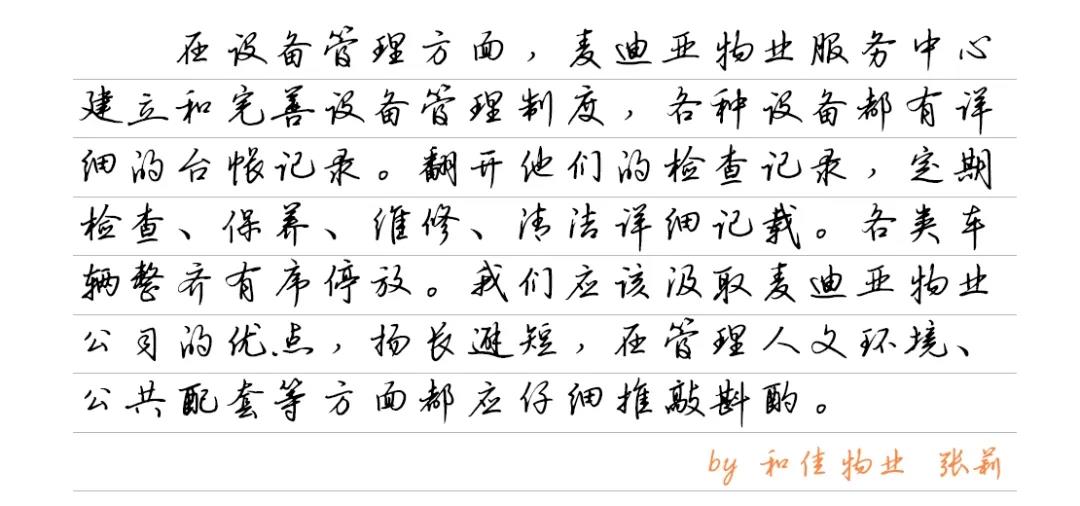 在设备管理方面，麦迪亚物业服务中心
建立和完善设备管理制度，各种设备都有详
细的台帐记录。翻开他们的检查记录，定期
检查、保养、维修、清洁详细记载。各类车
辆整齐有序停放。我们应该汲取麦迪亚物业
公司的优点，扬长避短，在管理人文环境、
公共配套等方面都应仔细推敲斟酌。
by 和佳物业 张莉